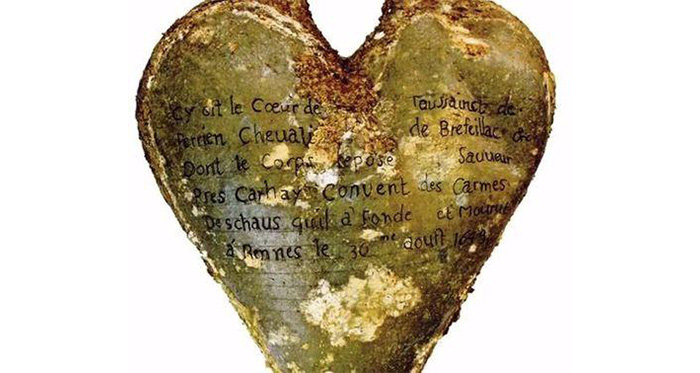 Cy git le Coeur de Toussainctz de
Perrien Chevali de Brefeillac
Dont le Corps repose Sauveur
Pres Carhay Convent des Carmes
Deschaus quil à Fondé et Mourut
à Rennes le 30 me aoust